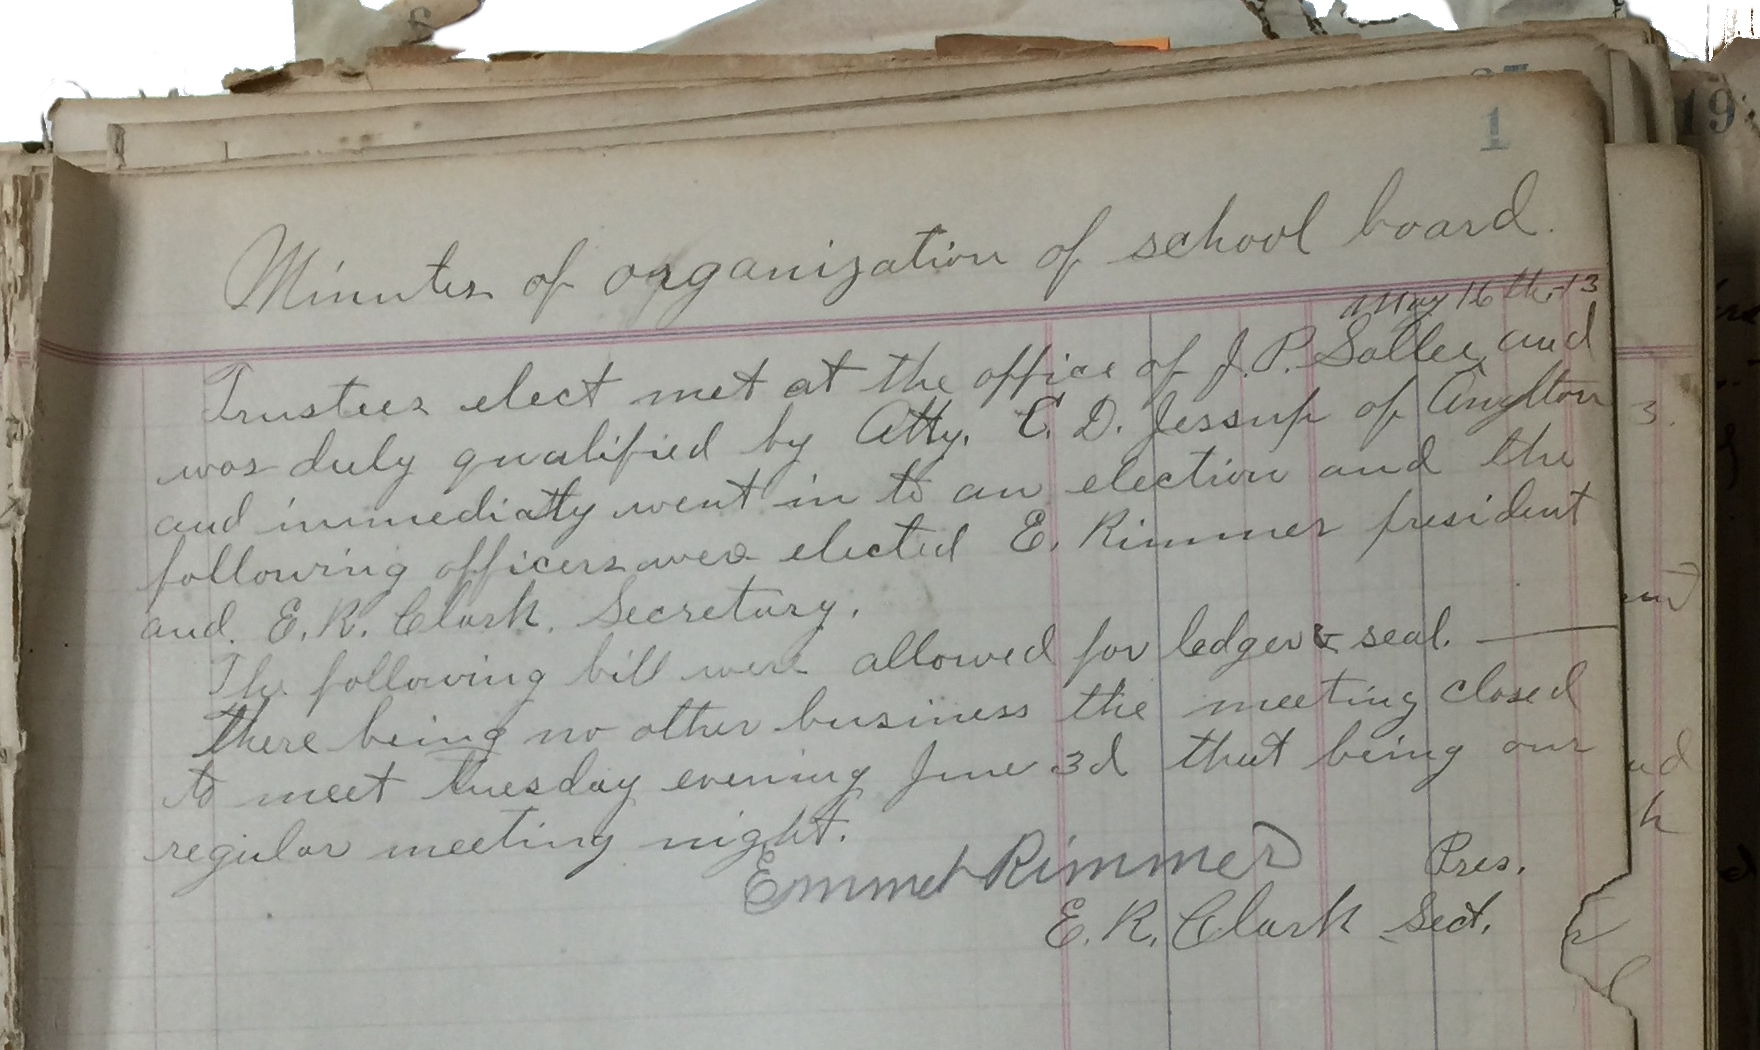 1
19
Minutes of organization of school board.
May 16th,-13
Trustees elect met at the office of J. P. Sallee, and
was duly qualified by Atty. C. D. Jessup of Angleton
and immediatly went in to an election and the
following officers were elected E. Rimmer president
and. E. R. Clark. Secretary.
The following bill were allowed for ledger & seal.
There being no other business the meeting closed
to meet tuesday evening June 3d that being our
regular meeting night.
Emmet Rimmer Pres.
E. R. Clark Sect.